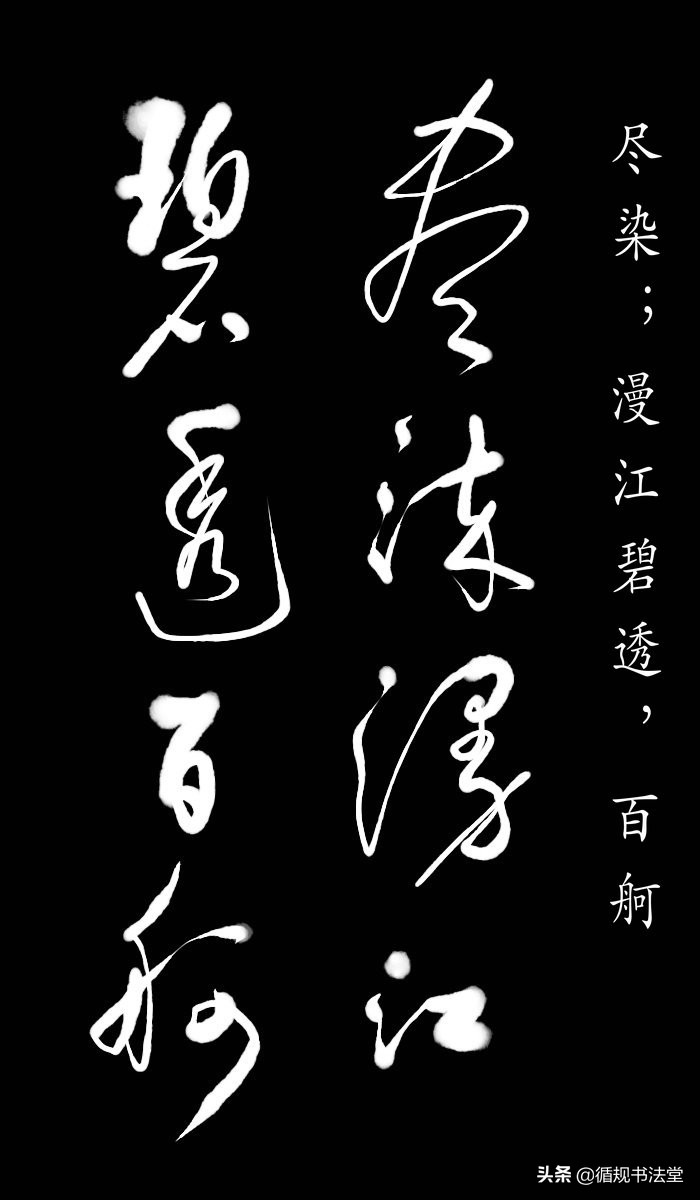 尽染；漫江碧透，百舸
尽染漫江
碧透百舸
头条 @循规书法堂